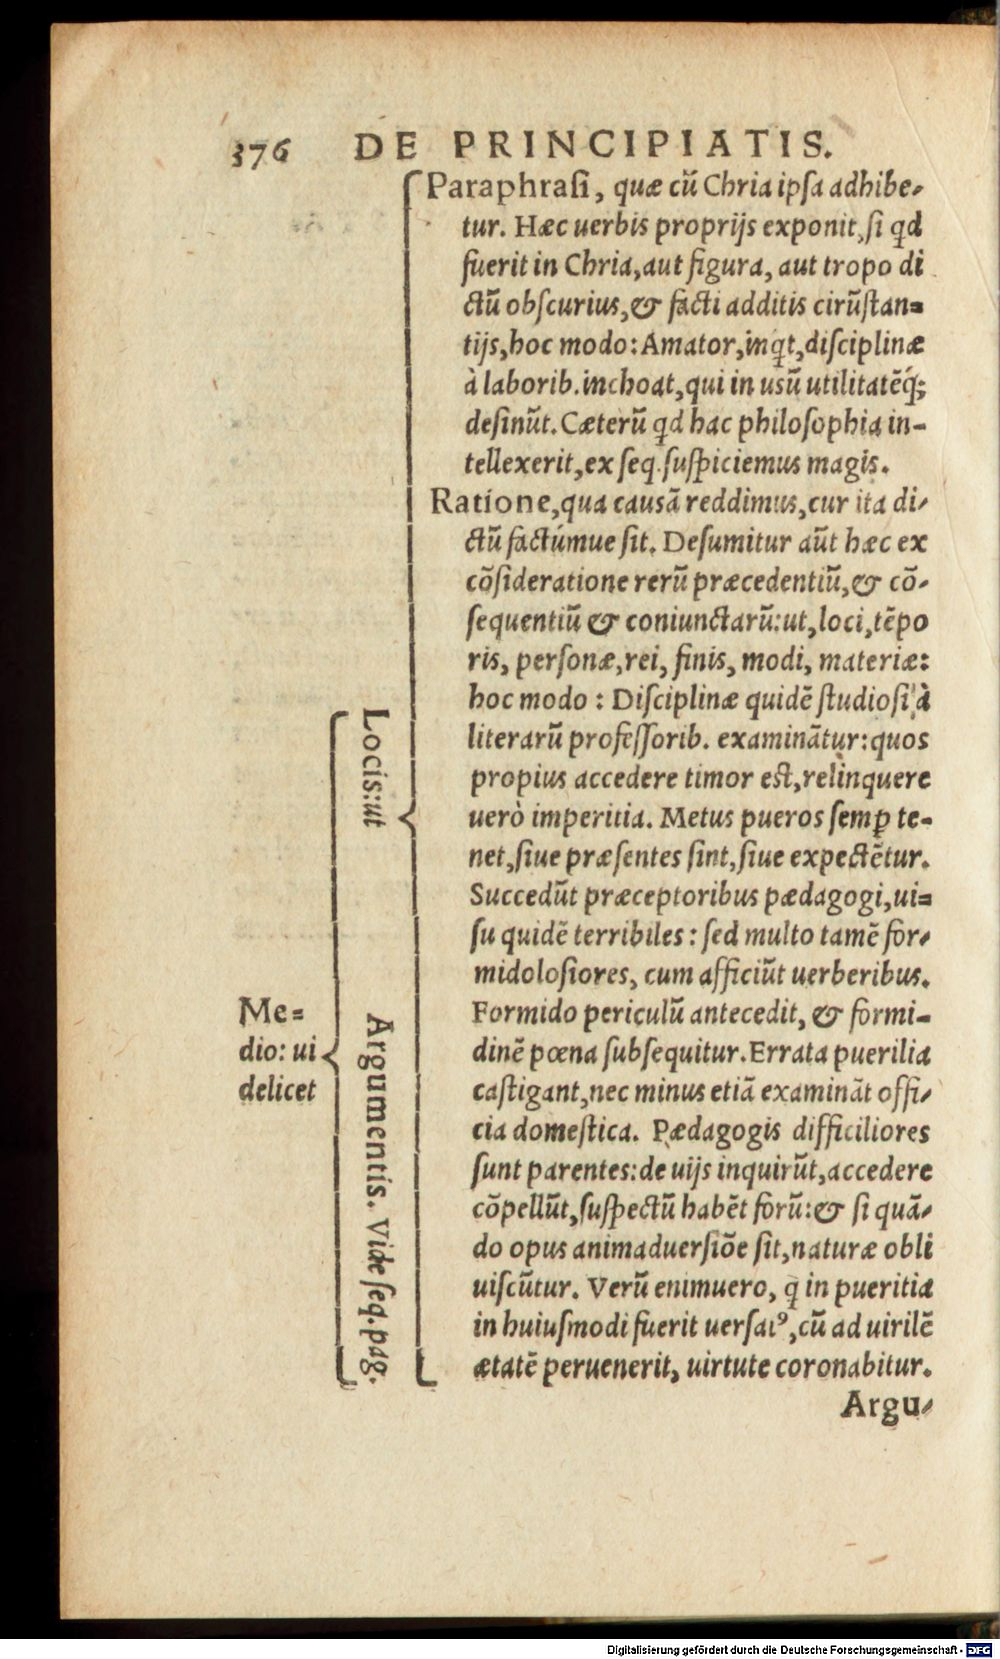 376 DE PRINCIPIATIS.
Paraphraſi, quæ cū Chria ipſa adhibe-
tur. Hæc uerbis proprijs exponit, ſi qd
fuerit in Chria, aut figura, aut tropo di
ctū obſcurius, & facti additis cirūſtan=
tijs, hoc modo: Amator, inqt, diſciplinæ
à laborib. inchoat, qui in uſū utilitatēq́;
deſinūt. Cæterū qd hac philoſophia in-
tellexerit, ex ſeq. ſuſpiciemus magis.
Ratione, qua causā reddimus, cur ita di-
ctū factúmue ſit. Deſumitur aūt hæc ex
cōſideratione rerū præcedentiū, & cō-
ſequentiū & coniunctarū: ut, loci, tēpo
ris, perſonæ, rei, finis, modi, materiæ:
hoc modo: Diſciplinæ quidē ſtudioſi à
literarū profeſſorib. examināt̄ur: quos
propius accedere timor eſt, relinquere
uerò imperitia. Metus pueros ſemꝑ te-
net, ſiue præſentes ſint, ſiue expectētur.
Succedūt præceptoribus pædagogi, ui=
ſu quidē terribiles: ſed multo tamē for-
midoloſiores, cum afficiūt uerberibus.
Formido periculū antecedit, & formi-
dinē pœna ſubſequitur. Errata puerilia
caſtigant, nec minus etiā examināt offi-
cia domeſtica. Pædagogis difficiliores
ſunt parentes: de uijs inquirūt, accedere
cōpellūt, ſuſpectū habēt forū: & ſi quā-
do opus animaduerſiōe ſit, naturæ obli
uiſcūtur. Verū enimuero, q̇ in pueritia
in huiuſmodi fuerit uerſatꝰ, cū ad uirilē
ætatē peruenerit, uirtute coronabitur.
Argu-
Me=
dio: ui
delicet
Locis: ut
Argumentis. Vide ſeq. pag.
Digitalisierung gefördert durch die Deutsche Forschungsgemeinschaft - DFG